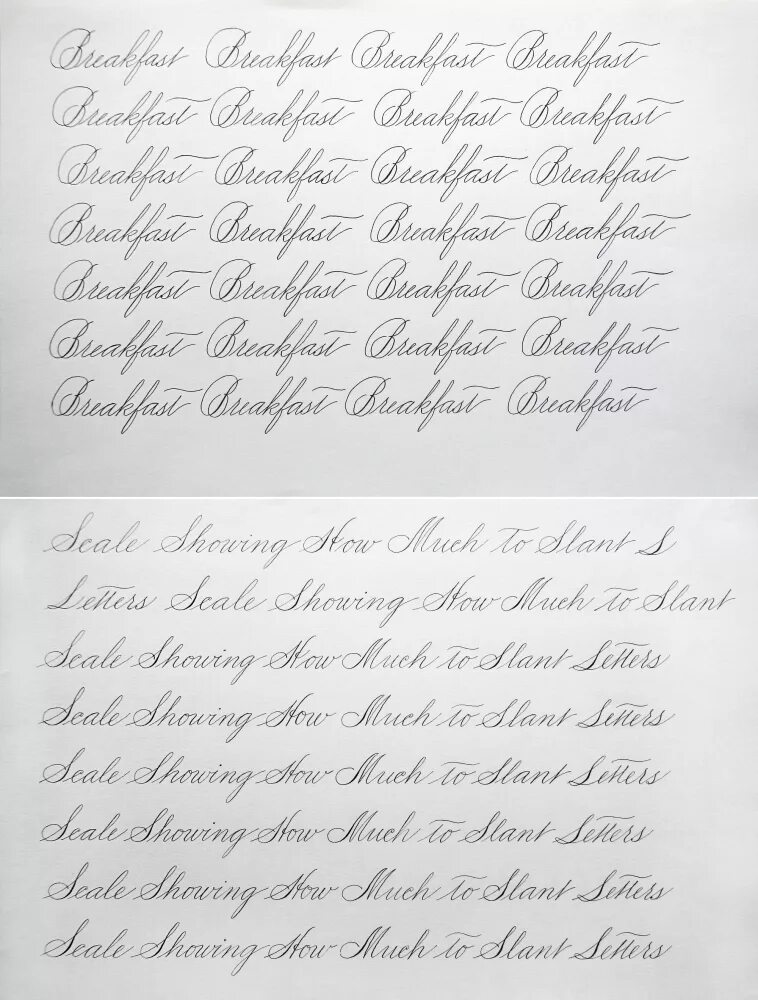 Breakfast Breakfast Breakfast Breakfast
Breakfast Breakfast Breakfast Breakfast
Breakfast Breakfast Breakfast Breakfast
Breakfast Breakfast Breakfast Breakfast
Breakfast Breakfast Breakfast Breakfast
Breakfast Breakfast Breakfast Breakfast
Breakfast Breakfast Breakfast Breakfast
Scale Showing How Much To Slant L
Letters Scale Showing How Much To Slant
Scale Showing How Much To Slant Letters
Scale Showing How Much To Slant Letters
Scale Showing How Much To Slant Letters
Scale Showing How Much To Slant Letters
Scale Showing How Much To Slant Letters
Scale Showing How Much To Slant Letters